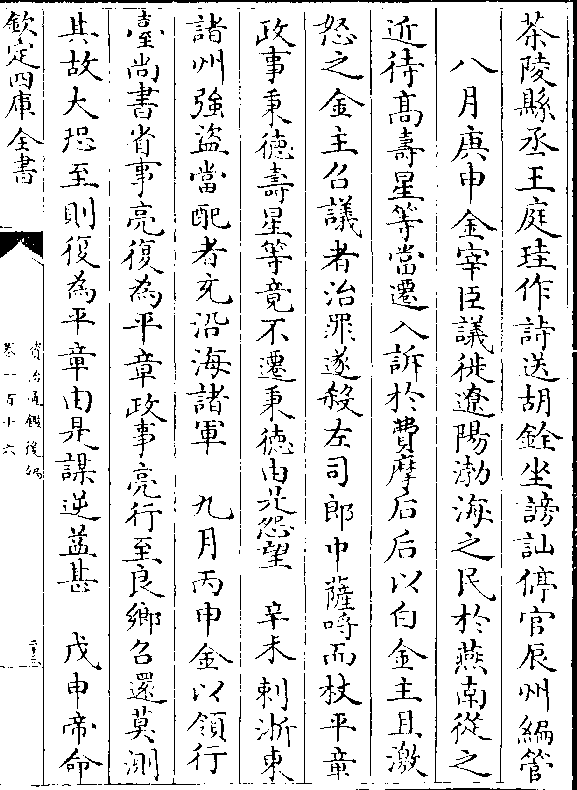 茶陵縣丞王庭珪作詩送胡銓坐謗訕停官辰州編管
八月庚申金宰臣議徙遼陽渤海之民於燕南從之
近待高壽星等當遷入訴於費摩后后以白金主且激
怒之金主召議者治罪遂殺左司郎中薩哷而杖平章
政事秉徳壽星等竟不遷秉徳由是怨望 辛未刺浙東
諸州強盜當配者充沿海諸軍 九月丙申金以領行
臺尚書省事亮復為平章政事亮行至良鄉召還莫測
其故大恐至則復為平章由是謀逆益甚 戊申帝命
欽定四庫全書
資治通鑑後編
卷一百十六
二十三